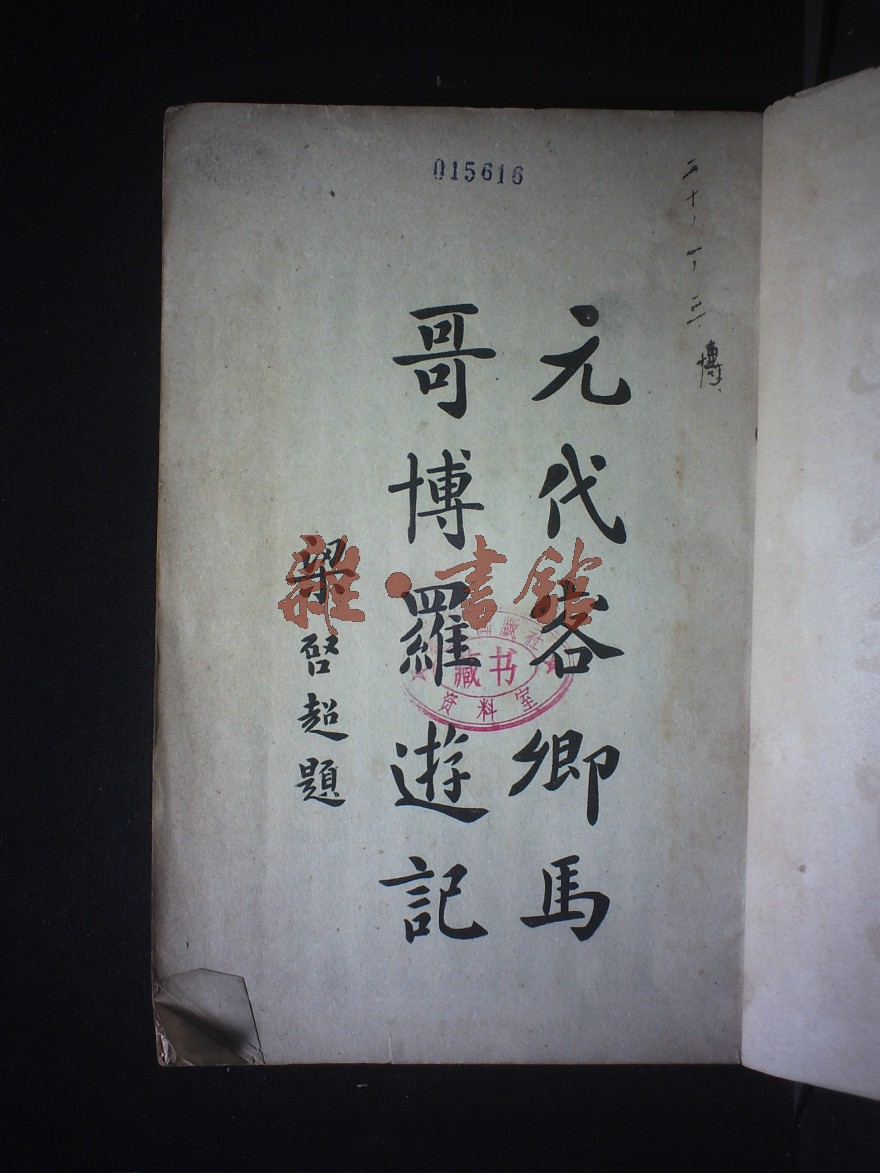 015616
二十、一、三、
元代客卿馬
哥博羅遊記
梁啓超題
雜·書館
版社
藏书
资料室